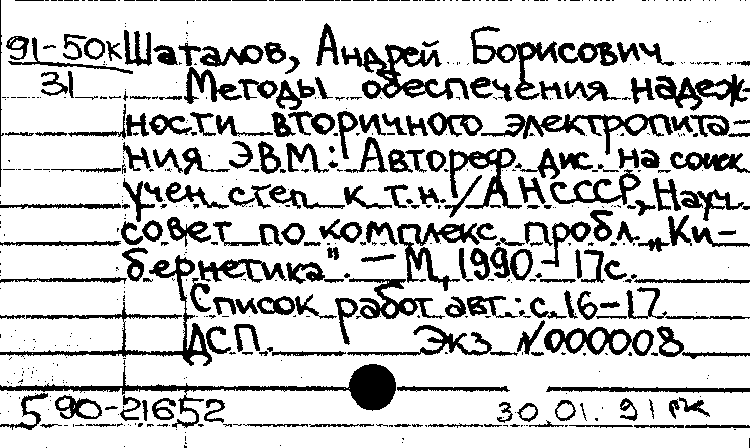 91-50к Шаталов, Андрей Борисович
31 Методы обеспечения надеж-
ности вторичного электропита-
ния ЭВМ: Автореф. дис. на соиск
учен. степ. к.т.н. / АН СССР, Науч.
совет по комплекс. пробл. „Ки-
бернетика". — М., 1990. - 17с.
Список работ авт.: с. 16-17.
ДСП. Экз. №000008.
5 90-21652 30.01.91 рж